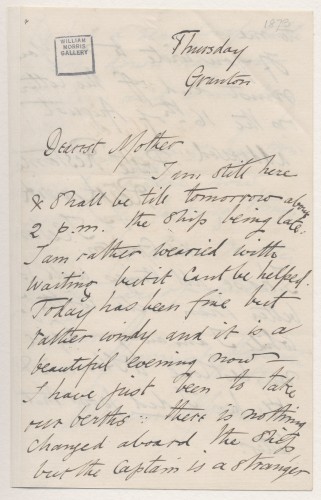 1873
WILLIAM
MORRIS
GALLERY
Thursday
Granton
Dearest Mother
I am still here
& shall be till tomorrow about
2 p.m. the ship being late:
I am rather wearied with
waiting but it can't be helped.
Today has been fine but
rather windy and it is a
beautiful evening now
I have just been to take
our berths: there is nothing
changed aboard the ship
but the Captain is a stranger